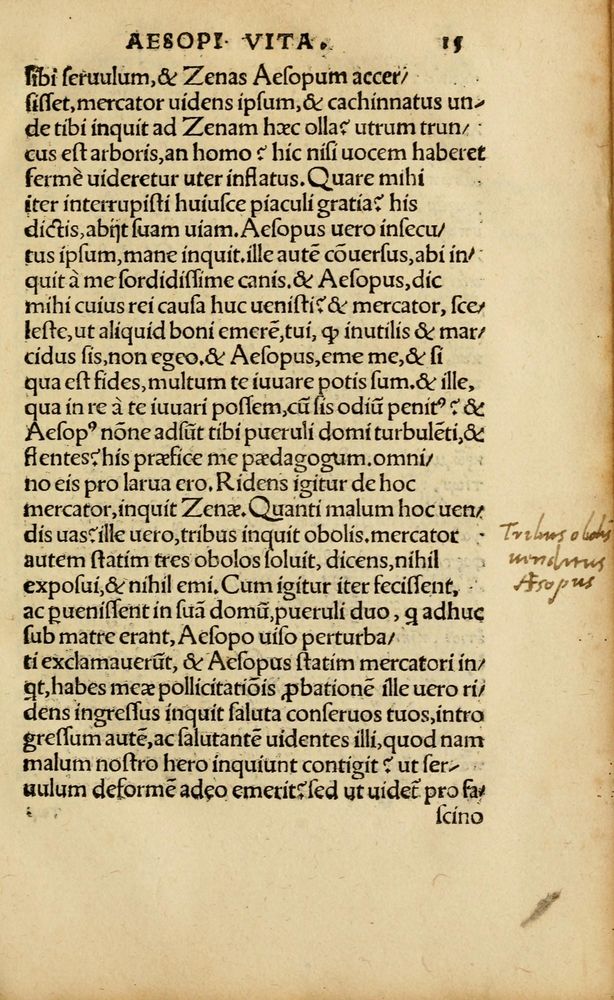 AESOPI· VITA. 15
ſibi ſeruulum,& Zenas Aeſopum accer/
ſiſſet,mercator uidens ipſum,& cachinnatus un/
de tibi inquit ad Zenam hæc olla? utrum trun/
cus eſt arboris,an homo? hic niſi uocem haberet
fermè uideretur uter inflatus.Quare mihi
iter interrupiſti huiuſce piaculi gratia? his
dictis,abijt ſuam uiam.Aeſopus uero inſecu/
tus ipſum,mane inquit.ille autē cōuerſus,abi in/
quit à me ſordidiſſime canis.& Aeſopus,dic
mihi cuius rei cauſa huc ueniſti?& mercator, ſce/
leſte,ut aliquid boni emerē,tui, ꝙ inutilis & mar/
cidus ſis,non egeo.& Aeſopus,eme me,& ſi
qua eſt fides,multum te iuuare potis ſum.& ille,
qua in re à te iuuari poſſem,cū ſis odiū penitꝰ?&
Aeſopꝰ nōne adſūt tibi pueruli domi turbulēti,&
flentes?his præfice me pædagogum.omni/
no eis pro larua ero.Ridens igitur de hoc
mercator,inquit Zenæ.Quanti malum hoc uen/
dis uas?ille uero,tribus inquit obolis.mercator
autem ſtatim tres obolos ſoluit, dicens,nihil
expoſui,& nihil emi.Cum igitur iter feciſſent,
ac ꝑueniſſent in ſuā domū,pueruli duo, q adhuc
ſub matre erant,Aeſopo uiſo perturba/
ti exclamauerūt, & Aeſopus ſtatim mercatori in/
qt,habes meæ pollicitatiōis ꝓbationē ille uero ri/
dens ingreſſus inquit ſaluta conſeruos tuos,intro
greſſum autē,ac ſalutantē uidentes illi,quod nam
malum noſtro hero inquiunt contigit? ut ſer/
uulum deformē adeo emerit?ſed ut uidet̄ pro fa/
ſcino
Tribus obolis
uenditus
Aesopus